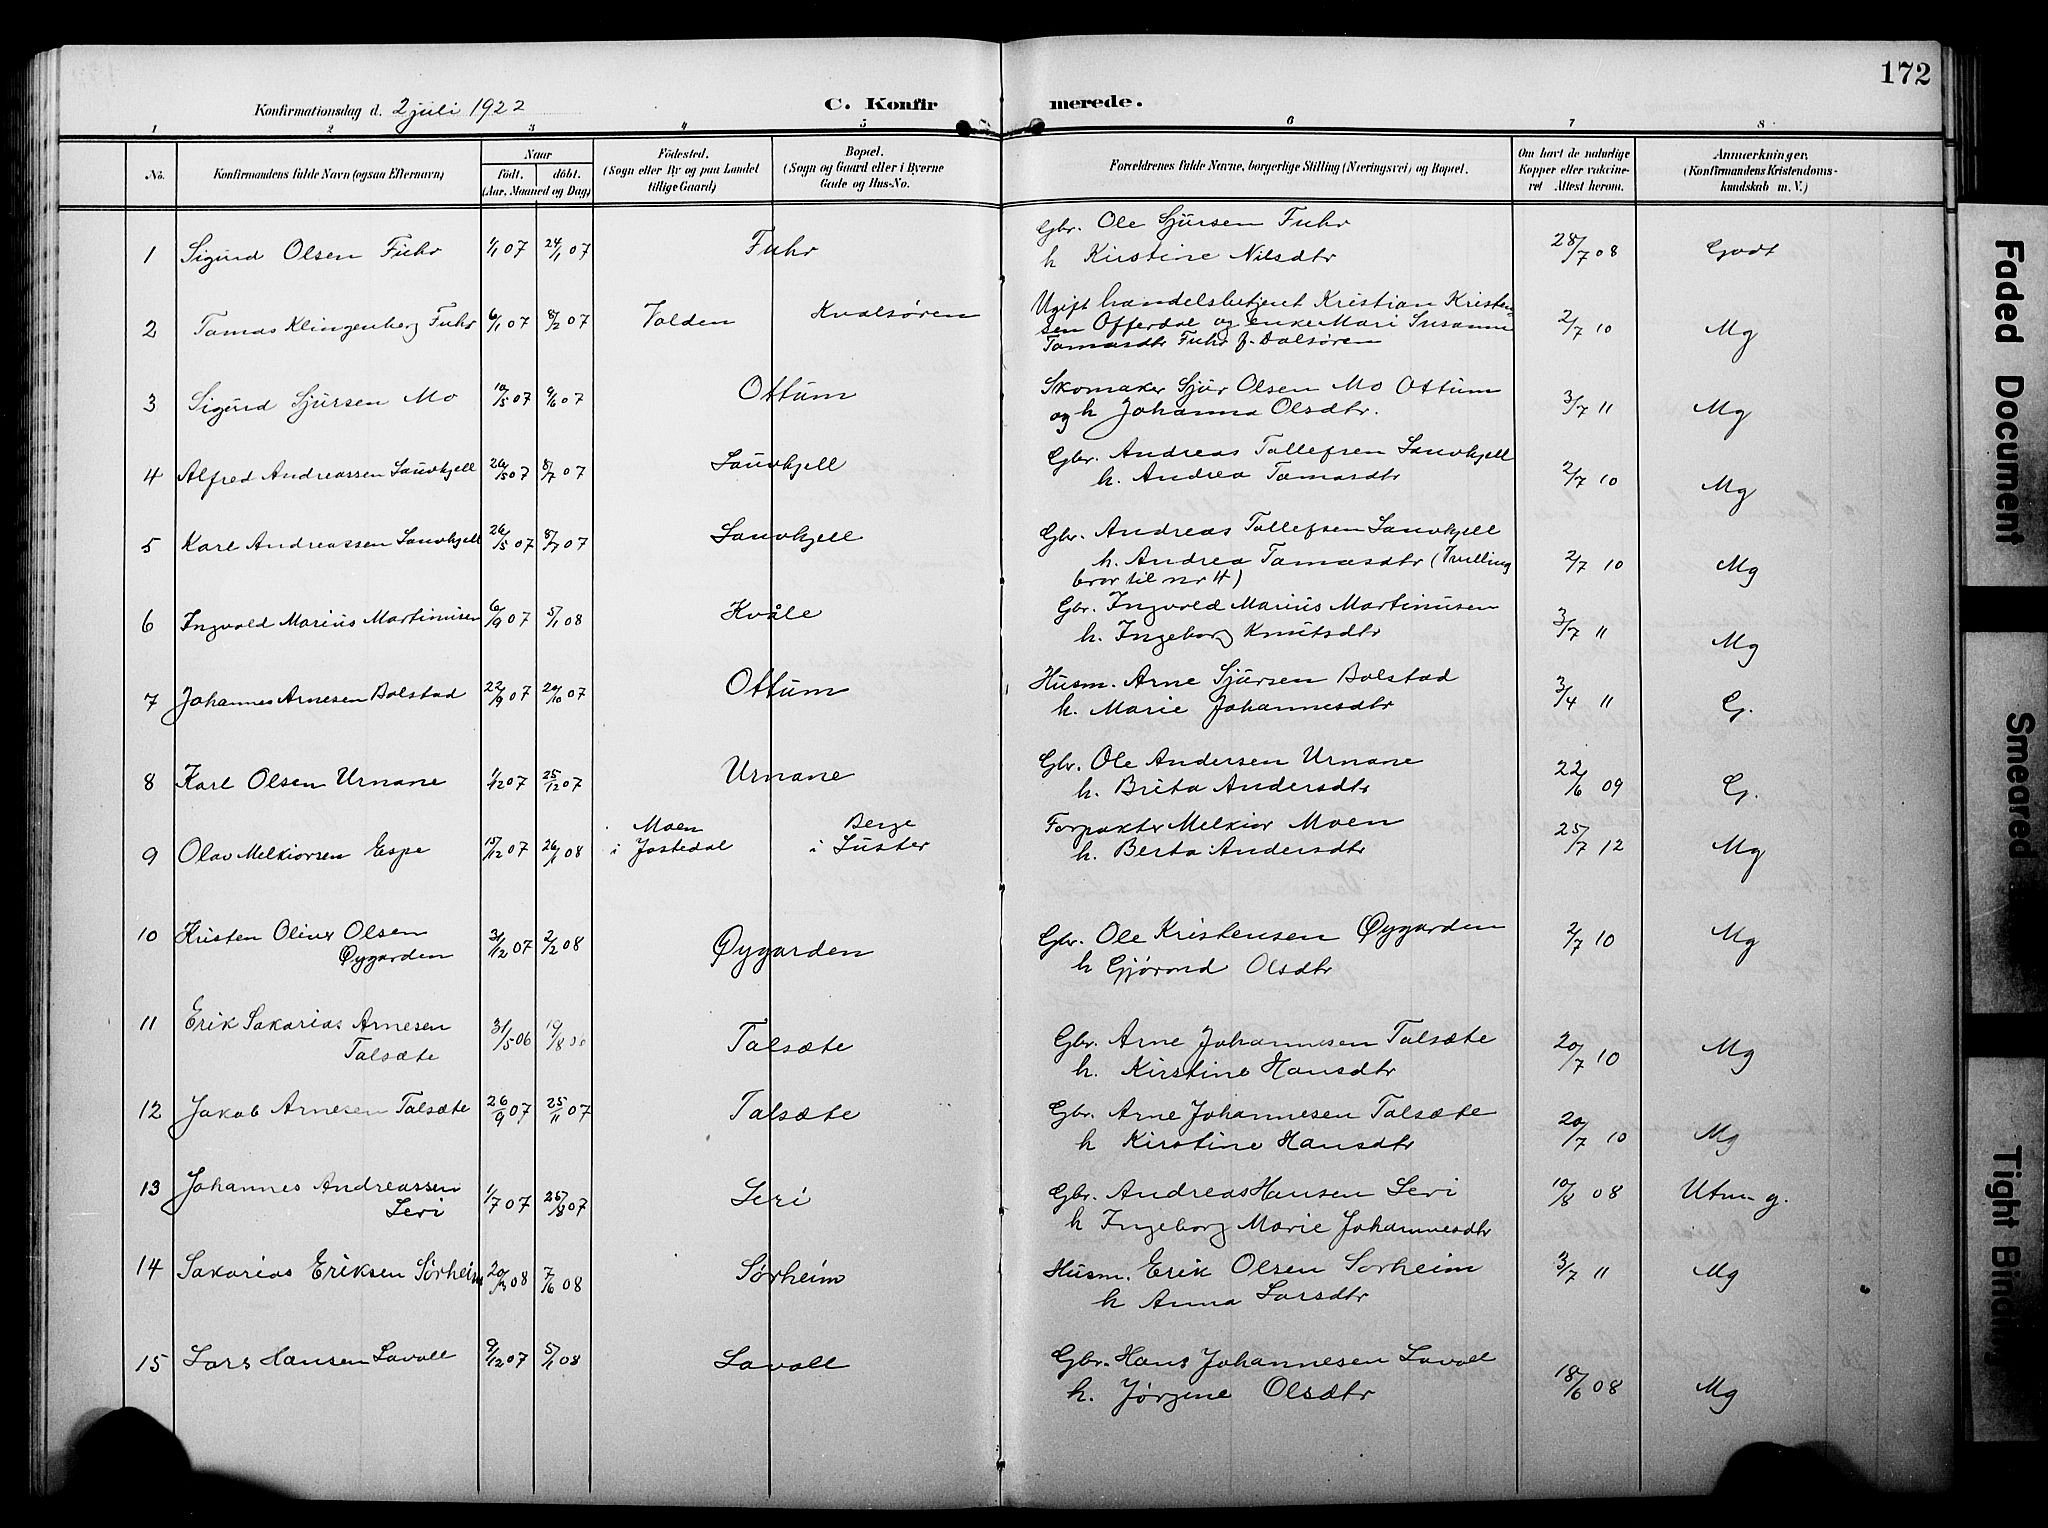 172
Konfirmationsdag d. 2 juli 1922
C. Konfirmerede.
1 2 3 4 5 6 7 8
No.
Konfirmandens fulde Navn (ogsaa Efternavn)
Naar
født. døbt.
(Aar, Maaned og Dag)
Fødested.
(Sogn eller By og paa Landet
tillige Gaard)
Bopæl.
(Sogn og Gaard eller i Byerne
Gade og Hus-No.
Forældrenes fulde Navne, borgerlige Stilling (Næringsvei) og Bopæl.
Om havt de naturlige
Kopper eller vakcine-
ret Attest herom.
Anmærkninger,
(Konfirmandens Kristendoms-
kundskab m. V.)
1 Sigurd Olsen Fuhr 1/1 07 24/1 07 Fuhr
Gbr. Ole Sjursen Fuhr
h Kirstine Nilsdtr 28/7 08 Godt
2 Tamas Klingenberg Fuhr 6/1 07 8/2 07 Volden Kvalsøren
Ugift handelsbetjent Kristian Kristen-
sen Offerdal og enke Mari Susanne
Tamasdtr Fuhr f. Dalsøren 2/7 10 Mg
3 Sigurd Sjursen Mo 10/5 07 9/6 07 Ottum
Skomaker Sjur Olsen Mo Ottum
og h Johanna Olsdtr. 3/7 11 Mg
4 Alfred Andreassen Lauvhjell 26/5 07 8/7 07 Lauvhjell
Gbr. Andreas Tollefsen Lauvhjell
h. Andrea Tamasdtr 2/7 10 Mg
5 Karl Andreassen Lauvhjell 26/5 07 8/7 07 Lauvhjell
Gbr. Andreas Tollefsen Lauvhjell
h. Andrea Tamasdtr (Tvilling
bror til nr 4) 2/7 10 Mg
6 Ingvald Marius Martinusen 6/9 07 5/1 08 Kvåle
Gbr. Ingvald Marius Martinusen
h. Ingeborg Knutsdtr 3/7 11 Mg
7 Johannes Arnesen Bolstad 22/9 07 20/10 07 Ottum
Husm. Arne Sjursen Bolstad
h. Marie Johannesdtr 3/4 11 G.
8 Karl Olsen Urnane 1/12 07 25/12 07 Urnane
Gbr. Ole Andersen Urnane
h. Brita Andersdtr 22/6 09 G.
9 Olav Melkiorsen Espe 15/12 07 26/1 08 Moen
i Jostedal Berge
i Luster
Forpakter Melkior Moen
h. Berta Andersdtr 25/7 12 Mg
10 Kristen Oliver Olsen
Øygarden 31/12 07 2/2 08 Øygarden
Gbr. Ole Kristensen Øygarden
h Gjørond Olsdtr 2/7 10 Mg
11 Erik Sakarias Arnesen
Talsæte 31/5 06 19/8 06 Talsæte
Gbr. Arne Johannesen Talsæte
h. Kirstine Hansdtr 20/7 10 Mg
12 Jakob Arnesen Talsæte 26/9 07 25/11 07 Talsæte
Gbr. Arne Johannesen Talsæte
h Kirstine Hansdtr 20/7 10 Mg
13 Johannes Andreassen
Leri 1/7 07 25/8 07 Leri
Gbr. Andreas Hansen Leri
h Ingeborg Marie Johannesdtr 10/8 08 Utm g.
14 Sakarias Eriksen Sørheim 20/3 08 7/6 08 Sørheim
Husm. Erik Olsen Sørheim
h Anna Larsdtr 3/7 11 Mg
15 Lars Hansen Lavoll 9/12 07 5/1 08 Lavoll
Gbr. Hans Johannesen Lavoll
h. Jørgine Olsdtr 18/6 08 Mg
Faded Document
Smeared
Tight Binding